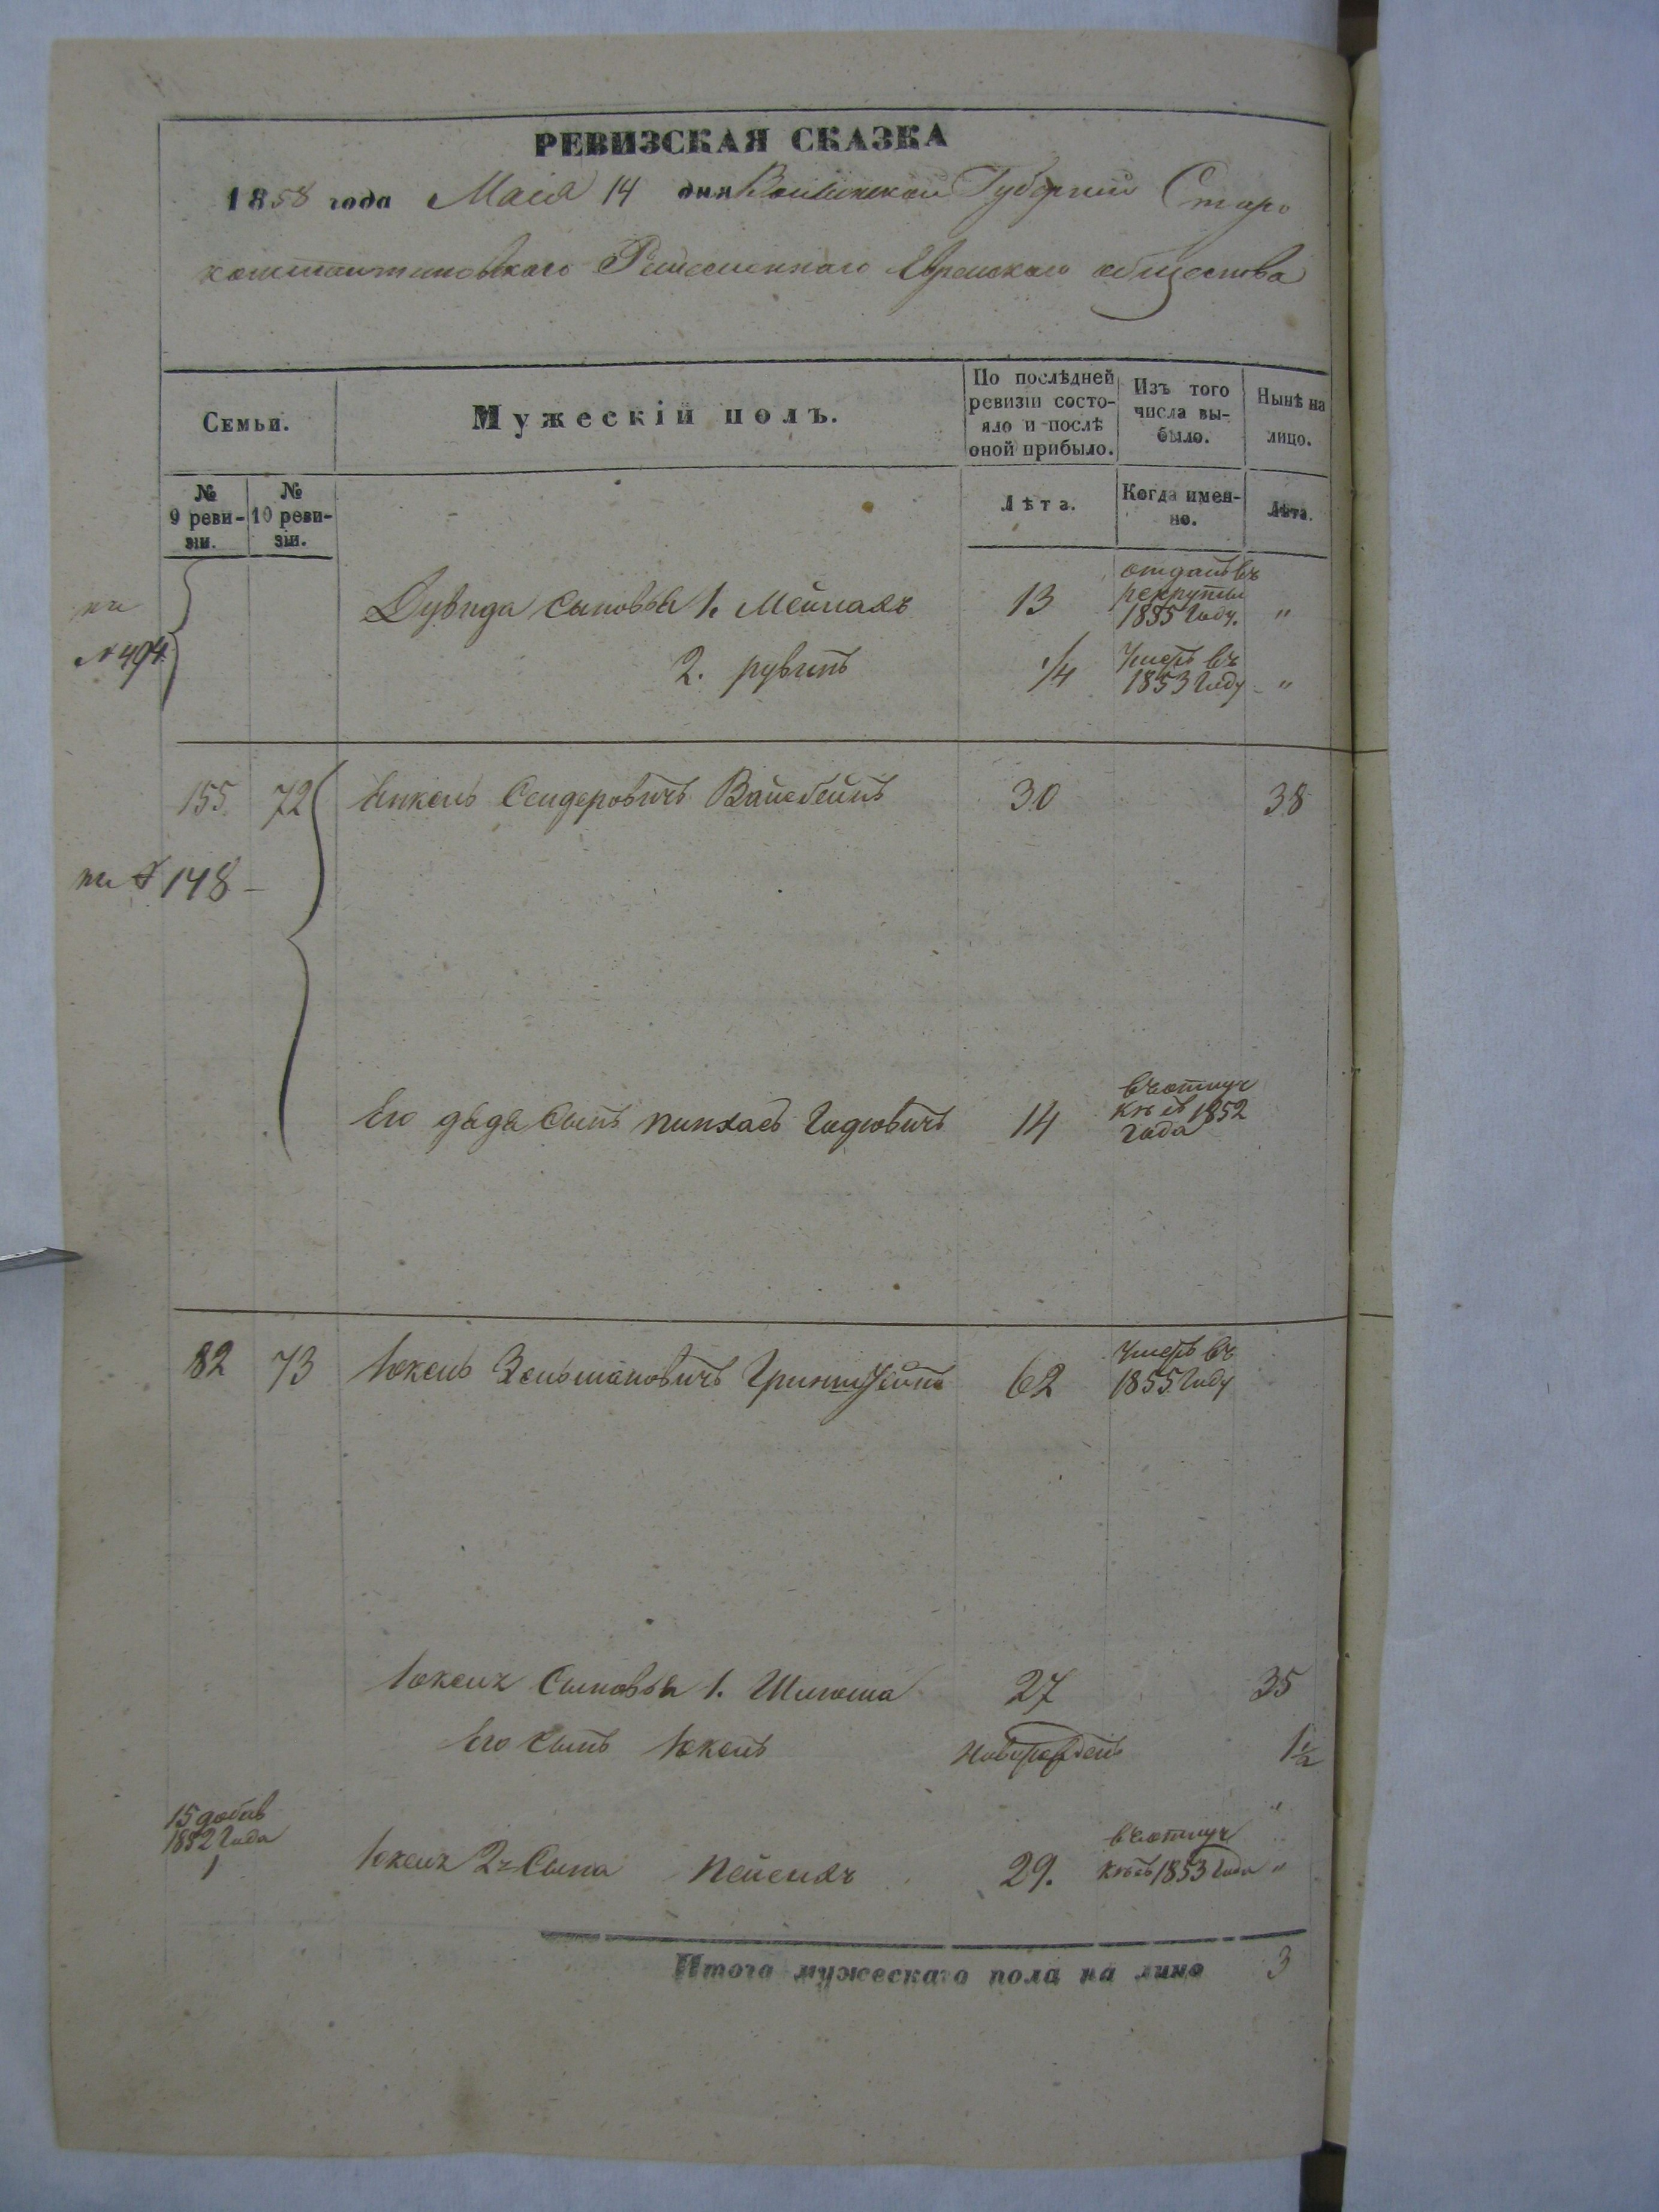 РЕВИЗСКАЯ СКАЗКА
1858 года Маія 14 дня Волынской Губерніи Старо
константиновскаго Ремесленнаго Еврейскаго общества
Семьи.
Мужескій полъ.
По послѣдней ревизіи состояло и послѣ оной прибыло.
Изъ того числа выбыло.
Нынѣ на лицо.
№ 9 ревизіи.
№ 10 ревизіи.
Лѣта.
Когда именно.
Лѣта.
№ 494
Дувида Сыновья 1. Мейлахъ 13 отданъ въ рекруты 1855 Году. "
2. рувинъ 1/4 Умеръ въ 1853 Году "
155 72 Янкель Сендеровичъ Вайсбейнъ 30 38
148
Его дяди Сынъ пинхасъ 14 въ отлучкѣ съ 1852 года
82 73 Юкель Зельмановичъ 62 Умеръ въ 1855 Году
Юкеля Сыновья 1. Шлиома 27 35
Его Сынъ Юкель Новорожденъ 1 1/2
15 добав 1852 Года 1
Юкеля 2й Сына пейсахъ 29. въ отлучкѣ съ 1853 Года "
Итого мужескаго пола на лицо 3